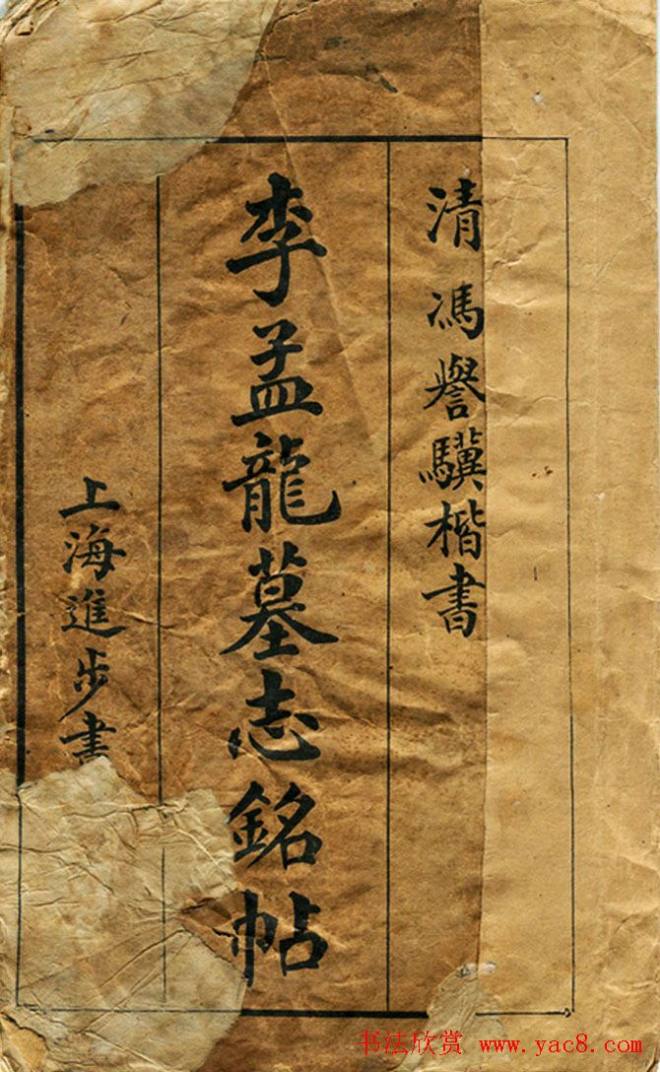 清馮譽驥楷書
李孟龍墓志銘帖
上海進步書
书法欣赏 www.yac8.com